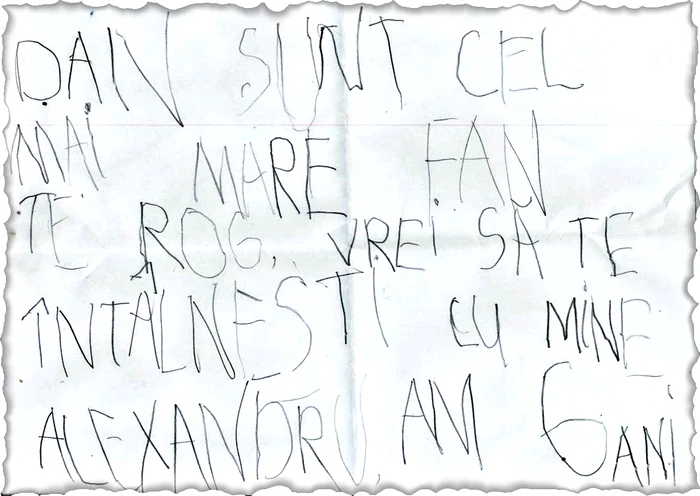 DAN SUNT CEL
MAI MARE FAN
TE ROG, VREI SĂ TE
ÎNTÂLNEȘTI CU MINE
ALEXANDRU, AM 6 ANI